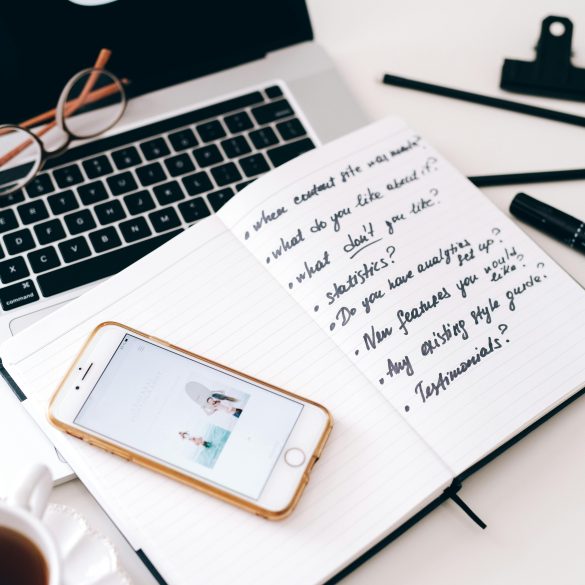 • when current site was made?
• what do you like about it?
• what don't you like?
• statistics?
• Do you have analytics
set up?
• New features you would
like?
• Any existing style guide?
• Testimonials?
command